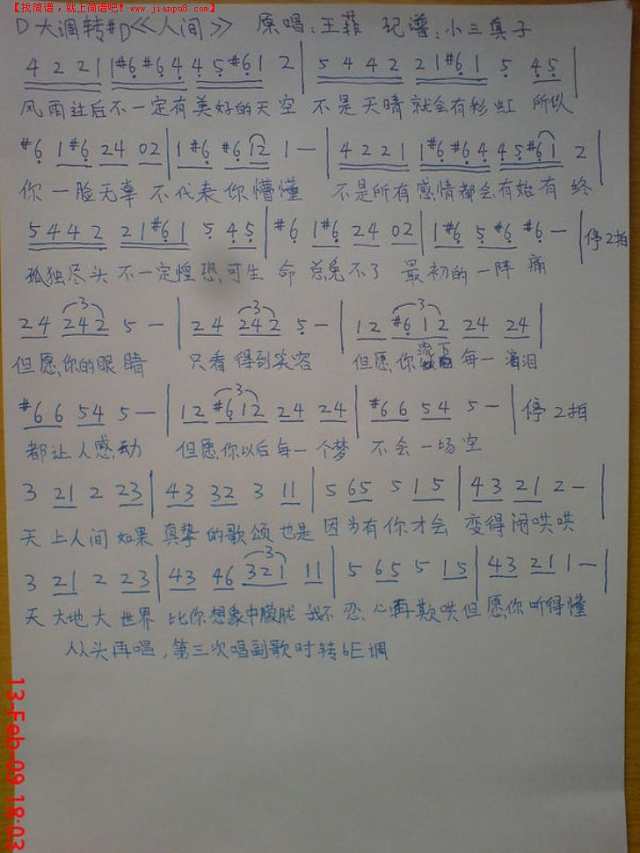 【找简谱，就上简谱吧!】
www.jianpu8.com
D大调转#D≪人间≫ 原唱：王菲 记谱：小三真子
4 2 2 1 1 #6 #6 4 4 5 #6 1 2 | 5 4 4 2 2 1 #6 1 5 4 5 |
风雨过后不一定有美好的天空 不是天晴就会有彩虹 所以
#6 1 #6 2 4 0 2 | 1 #6 #6 1 2 1 — | 4 2 2 1 1 #6 #6 4 4 5 #6 1 2 |
你一脸无辜 不代表你懵懂 不是所有感情都会有始有终
5 4 4 2 2 1 #6 1 5 4 5 | #6 1 #6 2 4 0 2 | 1 #6 5 #6 #6 — | 停2拍
孤独尽头不一定惶恐可生命总免不了最初的一阵痛
2 4 2 4 2 5 — | 2 4 2 4 2 5 — | 1 2 #6 1 2 2 4 2 4 |
但愿你的眼睛 只看得到笑容 但愿你流下每一滴泪
#6 6 5 4 5 — | 1 2 #6 1 2 2 4 2 4 | #6 6 5 4 5 — | 停2拍
都让人感动 但愿你以后每一个梦 不会一场空
3 2 1 2 2 3 | 4 3 3 2 3 1 1 | 5 6 5 5 1 5 | 4 3 2 1 2 — |
天上人间如果真挚的歌颂也是因为有你才会变得闹哄哄
3 2 1 2 2 3 | 4 3 4 6 3 2 1 1 1 | 5 6 5 5 1 5 | 4 3 2 1 1 — |
天大地大世界比你想象中朦胧我不忍心再欺哄但愿你听得懂
从头再唱，第三次唱副歌时转bE调
13-Feb-09 18:03